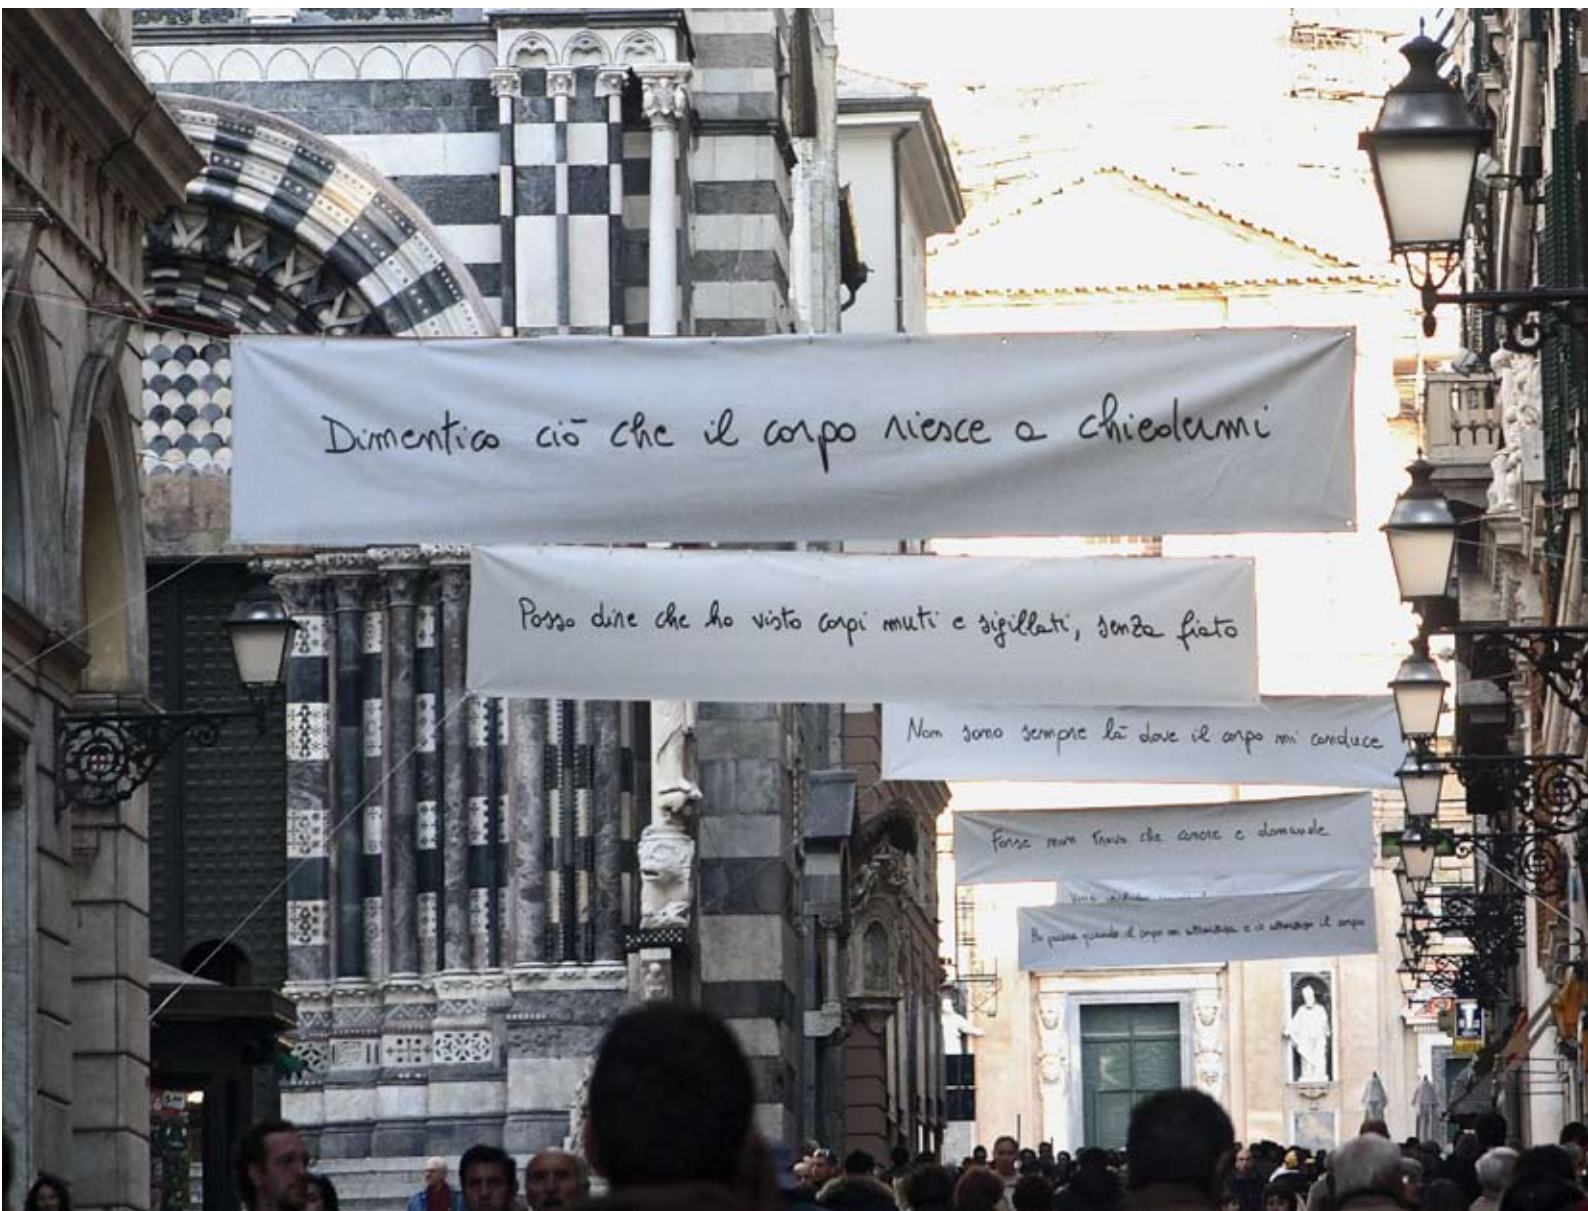 Dimentico ciò che il corpo riesce a chiedermi
Posso dire che ho visto corpi muti e sigillati, senza fiato
Non sono sempre là dove il corpo mi conduce
Forse non trovo che carore e domande
Ho paura quando il corpo mi attraversa e io attraverso il corpo